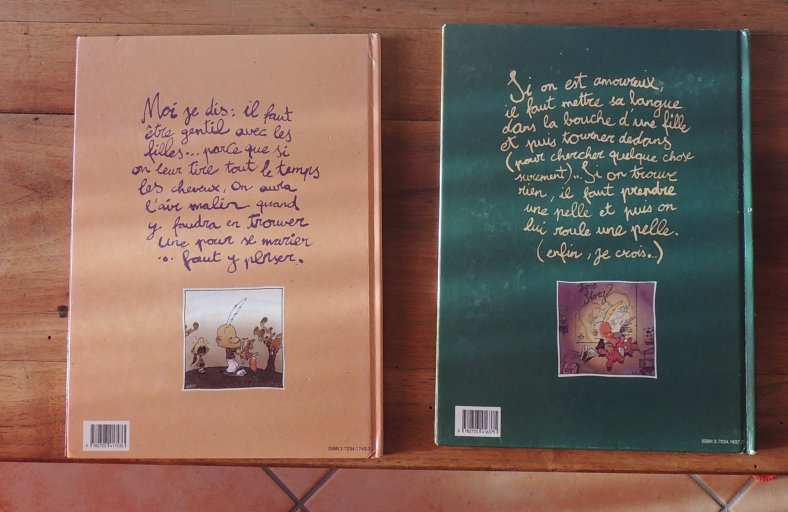 Moi je dis : il faut
être gentil avec les
filles... parce que si
on leur tire tout le temps
les cheveux, on aura
l'air malin quand
y faudra en trouver
une pour se marier
... faut y penser.
ISBN 2.7234.1743.
9 782723 417433
Si on est amoureux,
il faut mettre sa langue
dans la bouche d'une fille
et puis tourner dedans
(pour chercher quelque chose
surement)... Si on trouve
rien, il faut prendre
une pelle et puis on
lui roule une pelle.
(enfin, je crois...)
Story
ISBN 2.7234.1637.